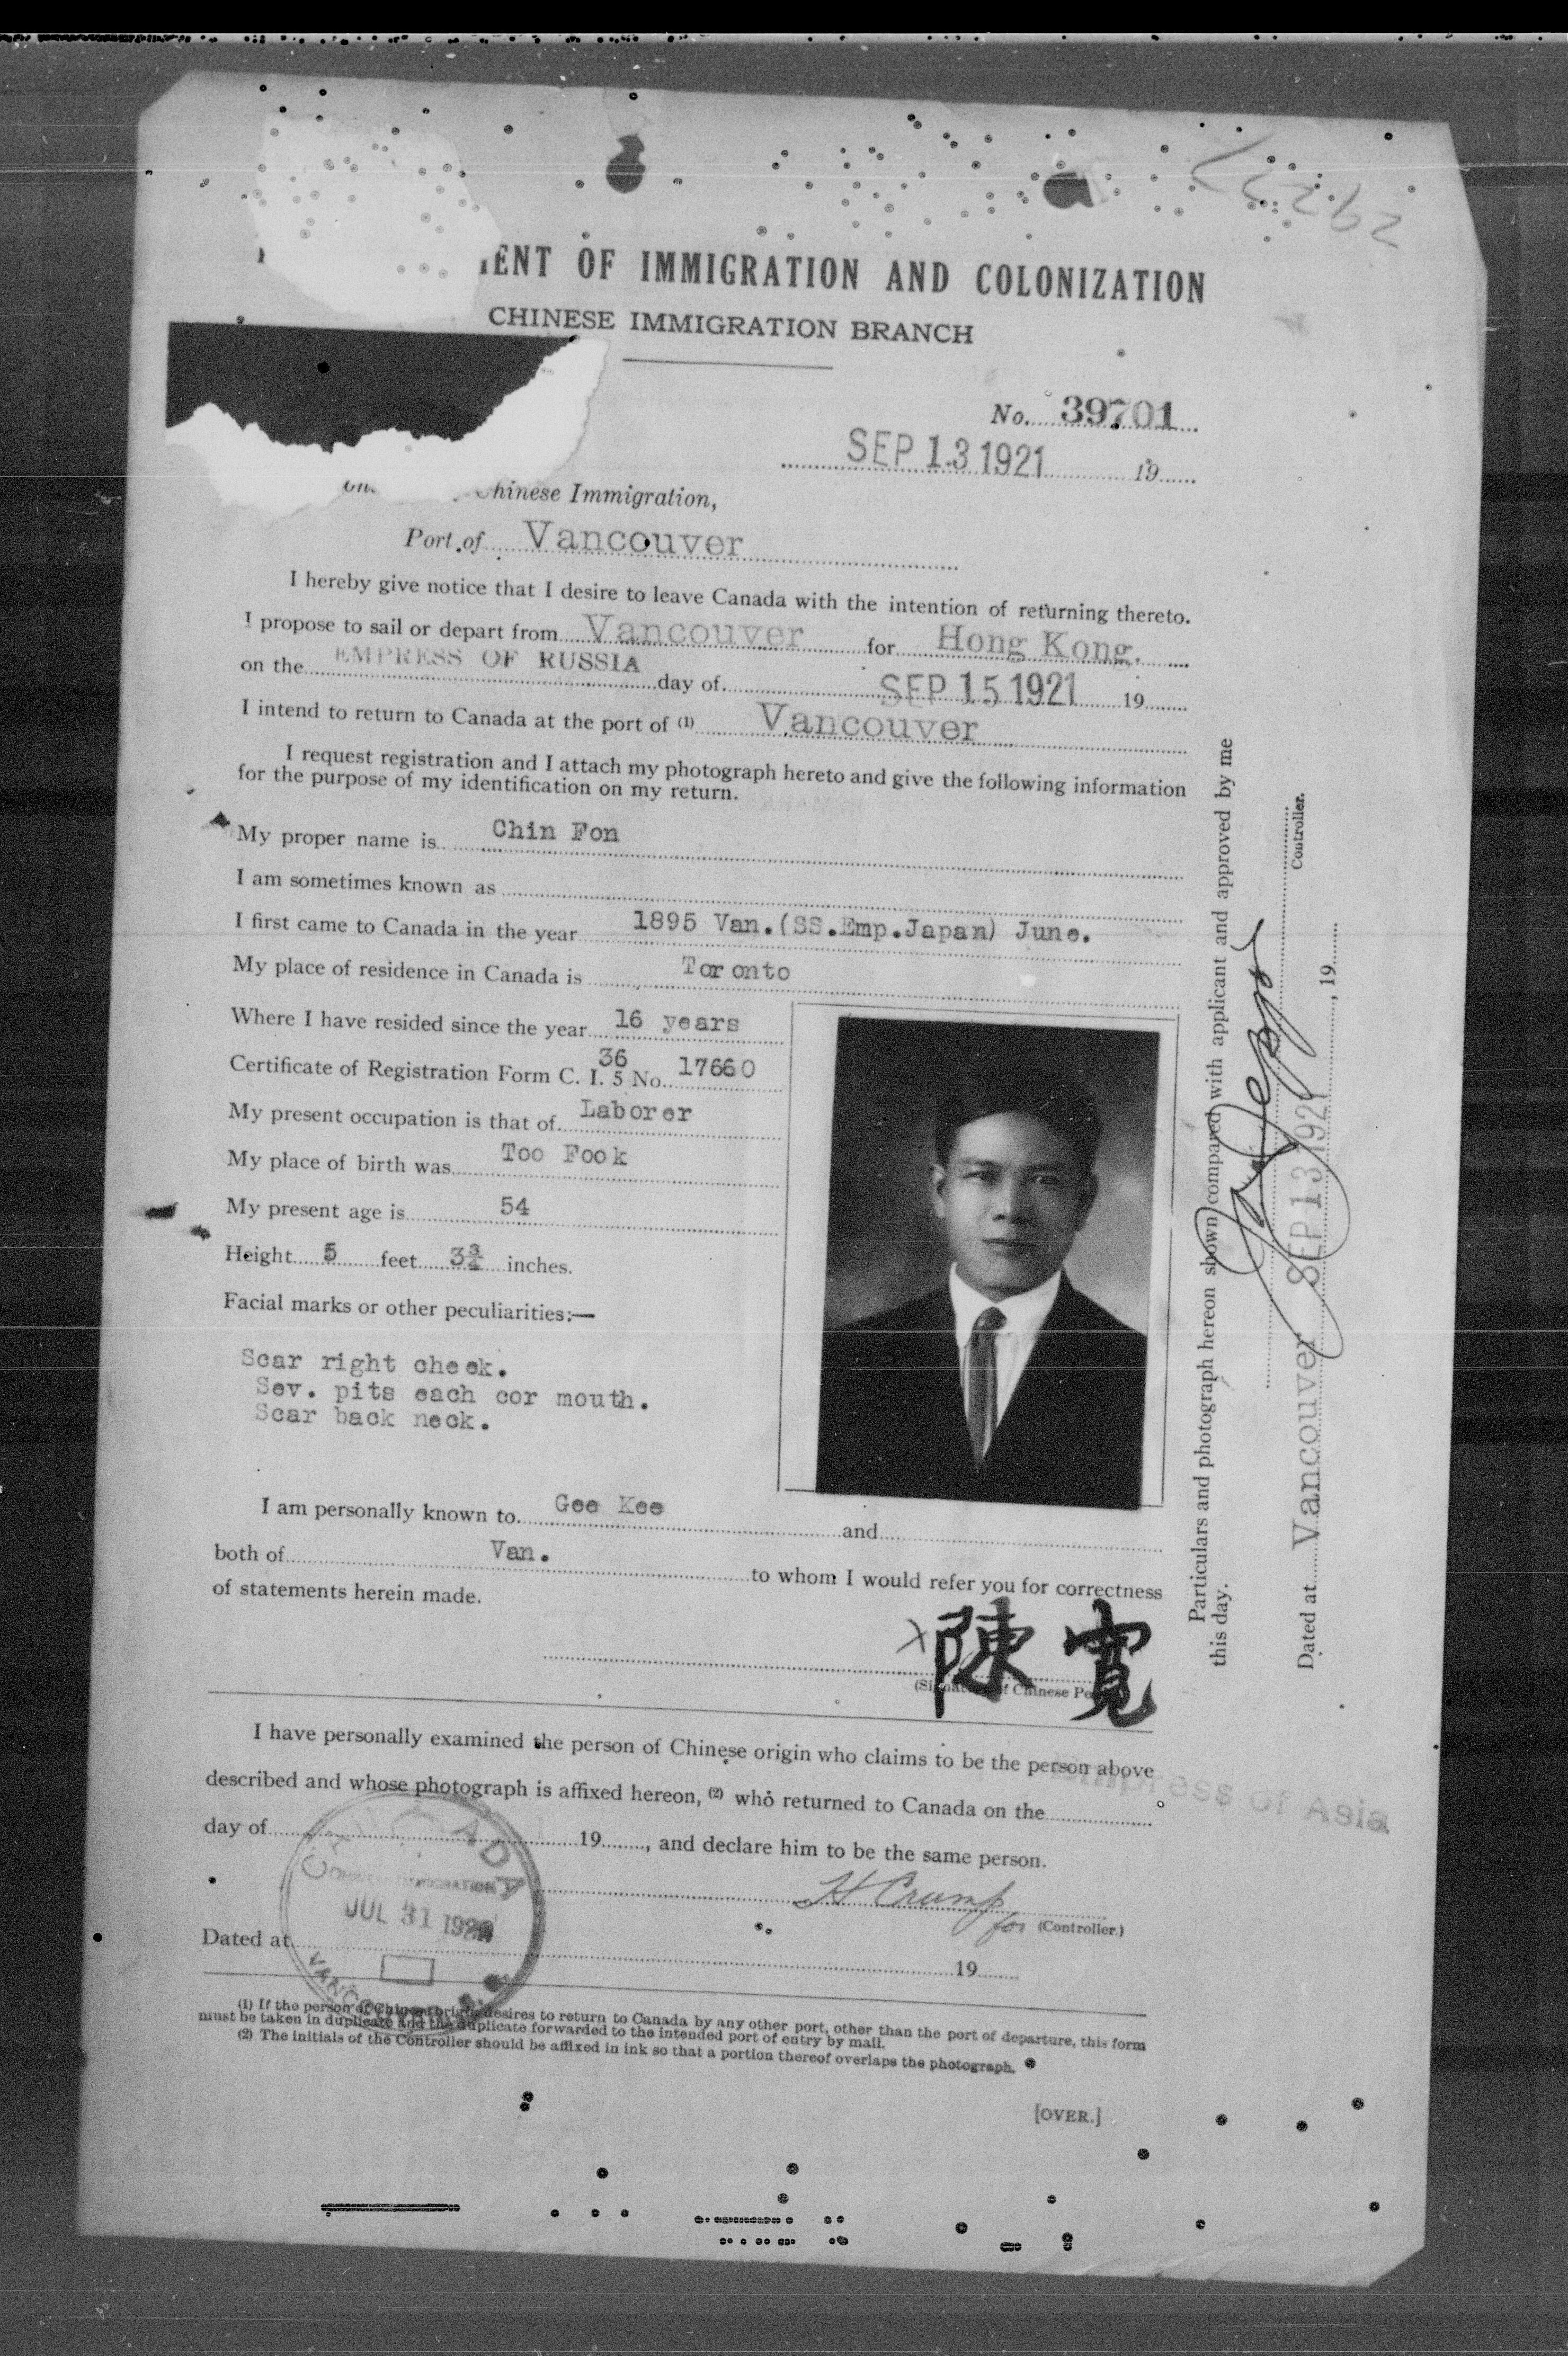 2923
ENT OF IMMIGRATION AND COLONIZATION
CHINESE IMMIGRATION BRANCH
No. 39701
SEP 13 1921 19
Chinese Immigration,
Port of Vancouver
I hereby give notice that I desire to leave Canada with the intention of returning thereto.
I propose to sail or depart from Vancouver for Hong Kong.
on the EMPRESS OF RUSSIA day of SEP 15 1921 19
I intend to return to Canada at the port of (1) Vancouver
I request registration and I attach my photograph hereto and give the following information
for the purpose of my identification on my return.
My proper name is Chin Fon
I am sometimes known as
I first came to Canada in the year 1895 Van.(SS.Emp.Japan) June.
My place of residence in Canada is Toronto
Where I have resided since the year 16 years
Certificate of Registration Form C. I. 5 36 No. 17660
My present occupation is that of Laborer
My place of birth was Too Fook
My present age is 54
Height 5 feet 3¾ inches.
Facial marks or other peculiarities:—
Scar right cheek.
Sev. pits each cor mouth.
Scar back neck.
I am personally known to Gee Kee and
both of Van. to whom I would refer you for correctness
of statements herein made.
X 陳寬
(Signature of Chinese Pe
I have personally examined the person of Chinese origin who claims to be the person above
described and whose photograph is affixed hereon, (2) who returned to Canada on the
day of 19, and declare him to be the same person.
H Crump
for (Controller.)
Dated at 19
(1) If the person of Chinese origin desires to return to Canada by any other port, other than the port of departure, this form
must be taken in duplicate and the duplicate forwarded to the intended port of entry by mail.
(2) The initials of the Controller should be affixed in ink so that a portion thereof overlaps the photograph.
[OVER.]
Particulars and photograph hereon shown compared with applicant and approved by me
this day.
Controller.
Dated at Vancouver SEP 13 1921, 19
Empress of Asia
CANADA
IMMIGRATION
JUL 31
VANCOUVER